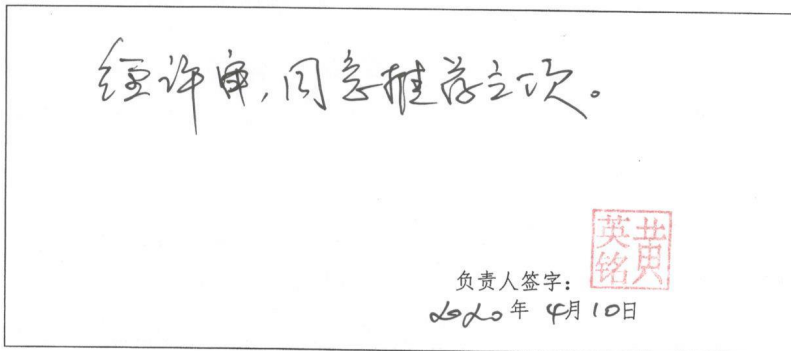 经评审,同意推荐立项。
黄英铭
负责人签字:
2020年 4月10日